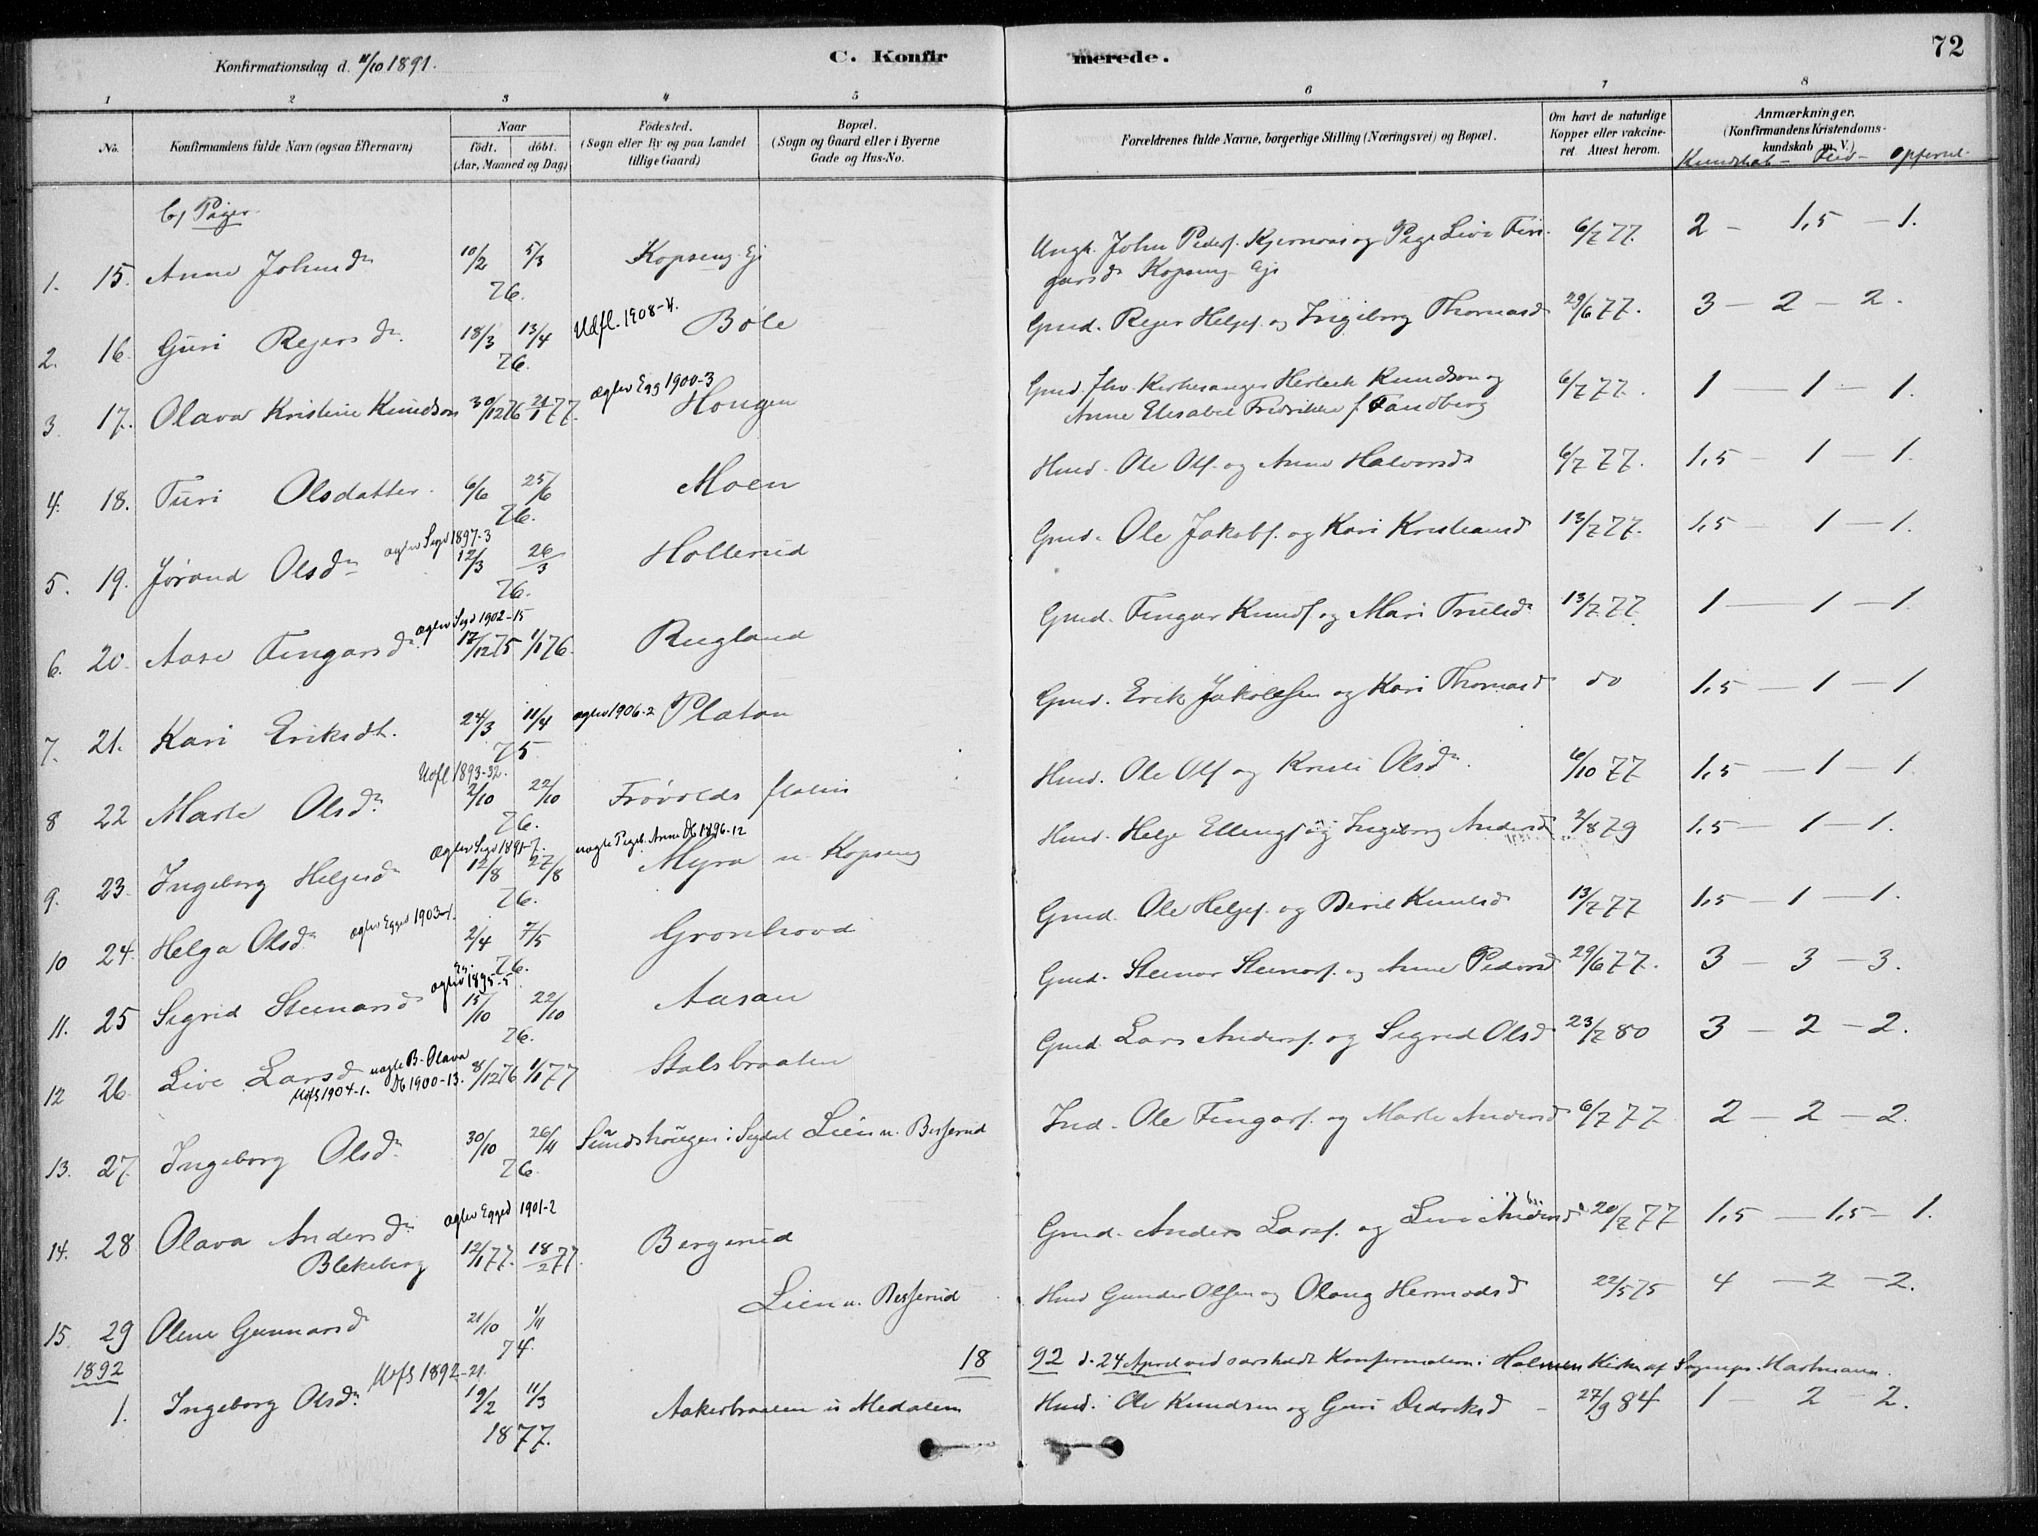 Konfirmationsdag d. 11/10 1891.
C. Konfirmerede.
72
1 2 3 4 5 6 7 8
No.
Konfirmandens fulde Navn (ogsaa Efternavn)
Naar
födt. döbt.
(Aar, Maaned og Dag)
Födested.
(Sogn eller By og paa Landet tillige Gaard)
Bopæl.
(Sogn og Gaard eller i Byerne Gade og Hus-No.
Forældrenes fulde Navne, borgerlige Stilling (Næringsvei) og Bopæl.
Om havt de naturlige Kopper eller vakcineret. Attest herom.
Anmærkninger.
(Konfirmandens Kristendomskundskab m. V.)
Kundskab — Flid —
b) Piger
1. 15. Anne Johnsdr 10/2 5/3 76. Kopseng Eje Ungk. John Peders. Kjernaas og Pige Live Fingarsdr Kopseng Eje 6/7 77. 2 — 1,5 — 1.
2. 16. Guri Reiersdr. 18/3 13/4 76. Udfl. 1908-4. Böle Gmd. Reier Helges. og Ingeborg Thomasd 29/6 77. 3 — 2 — 2.
3. 17. Olava Kristine Knudson 30/12 76 21/1 77. ægtev Egg 1900-3 Hougen Gmd. fhv. Kirkesanger Herleik Knudson og Anne Elisabet Fredrikke f. Sandberg 6/7 77. 1 — 1 — 1.
4. 18. Turi Olsdatter 6/6 25/6 76. Moen Hmd. Ole Ols. og Anne Halvorsdr 6/7 77. 1,5 — 1 — 1.
5. 19. Jörand Olsdr ægtev Sigd 1897-3 12/3 26/3 76. Hollerud Gmd. Ole Jakobs. og Kari Kristiansd 13/7 77. 1,5 — 1 — 1.
6. 20. Aase Fingarsdr ægtev Sigd 1902-15 17/12 75 1/1 76. Rugland Gmd. Fingar Knuds. og Mari Trulsdr 13/7 77 1 — 1 — 1
7. 21. Kari Eriksdt. 24/3 11/4 75 ægtev 1906-2 Platon Gmd. Erik Jakobsen og Kari Thomasd do 1,5 — 1 — 1
8 22 Marte Olsdr Udfl 1893-32. 2/10 22/10 76. Frövolds Hmd. Ole Ols og Kristi Olsdr 6/10 77 1,5 — 1 — 1
9. 23. Ingeborg Helgesdr ægtev Sigd 1891-7. 12/8 27/8 76. uægte Pigeb. Anne Db 1896-12 Myra u. Kopseng Hmd. Helge Ellings. og Ingeborg Andersd 2/8 79 1,5 — 1 — 1.
10 24. Helga Olsdr ægtev Egged 1903-1. 2/4 7/5 76. Gronhovd Gmd. Ole Helges. og Beret Knutsd 13/7 77 1,5 — 1 — 1.
11. 25 Sigrid Steinarsdr ægtev 1895-5 15/10 22/10 76. Aasan Gmd. Steinar Steinars. og Anne Pedersd 29/6 77. 3 — 3 — 3.
12 26. Live Larsdr uægte B. Olava Db 1900-13. Udfl 1904-1. 8/12 76 1/1 77 Stalsbraaten Gmd. Lars Anders. og Sigrid Olsd 23/7 80 3 — 2 — 2.
13. 27. Ingeborg Olsdr 30/10 26/11 76 Sundshougen i Sigdal Lien u. Besserud Ind. Ole Fingars. og Marte Andersd 6/7 77. 2 — 2 — 2.
14. 28 Olava Andersdr Blekeberg ægtev Egged 1901-2 12/1 77. 18/2 77. Bergerud Gmd. Anders Lars. og Live Andersd 20/7 77 1,5 — 1,5 — 1.
15 29 Oline Gunnarsd 21/10 1/11 74. Lien u. Besserud Hmd Gunder Olsen og Olaug Hermodsd 22/5 75 4 — 2 — 2.
1892
1892 d. 24 April ved særskilt Konfirmation i Holmen Kirke af Sognepr. Hartmann.
1. Ingeborg Olsdr. Udfl 1892-21. 19/2 11/3 1877. Aakerbraaten u. Medalen Hmd. Ole Knudsen og Guri Didriksd 27/9 84 1 — 2 — 2.